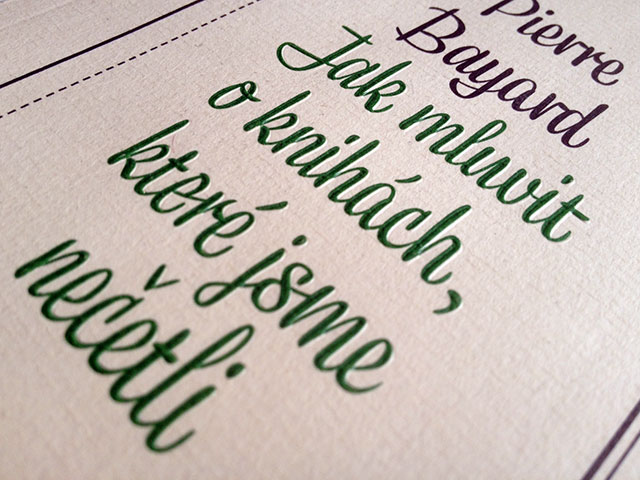 Pierre
Bayard
Jak mluvit
o knihách,
které jsme
nečetli